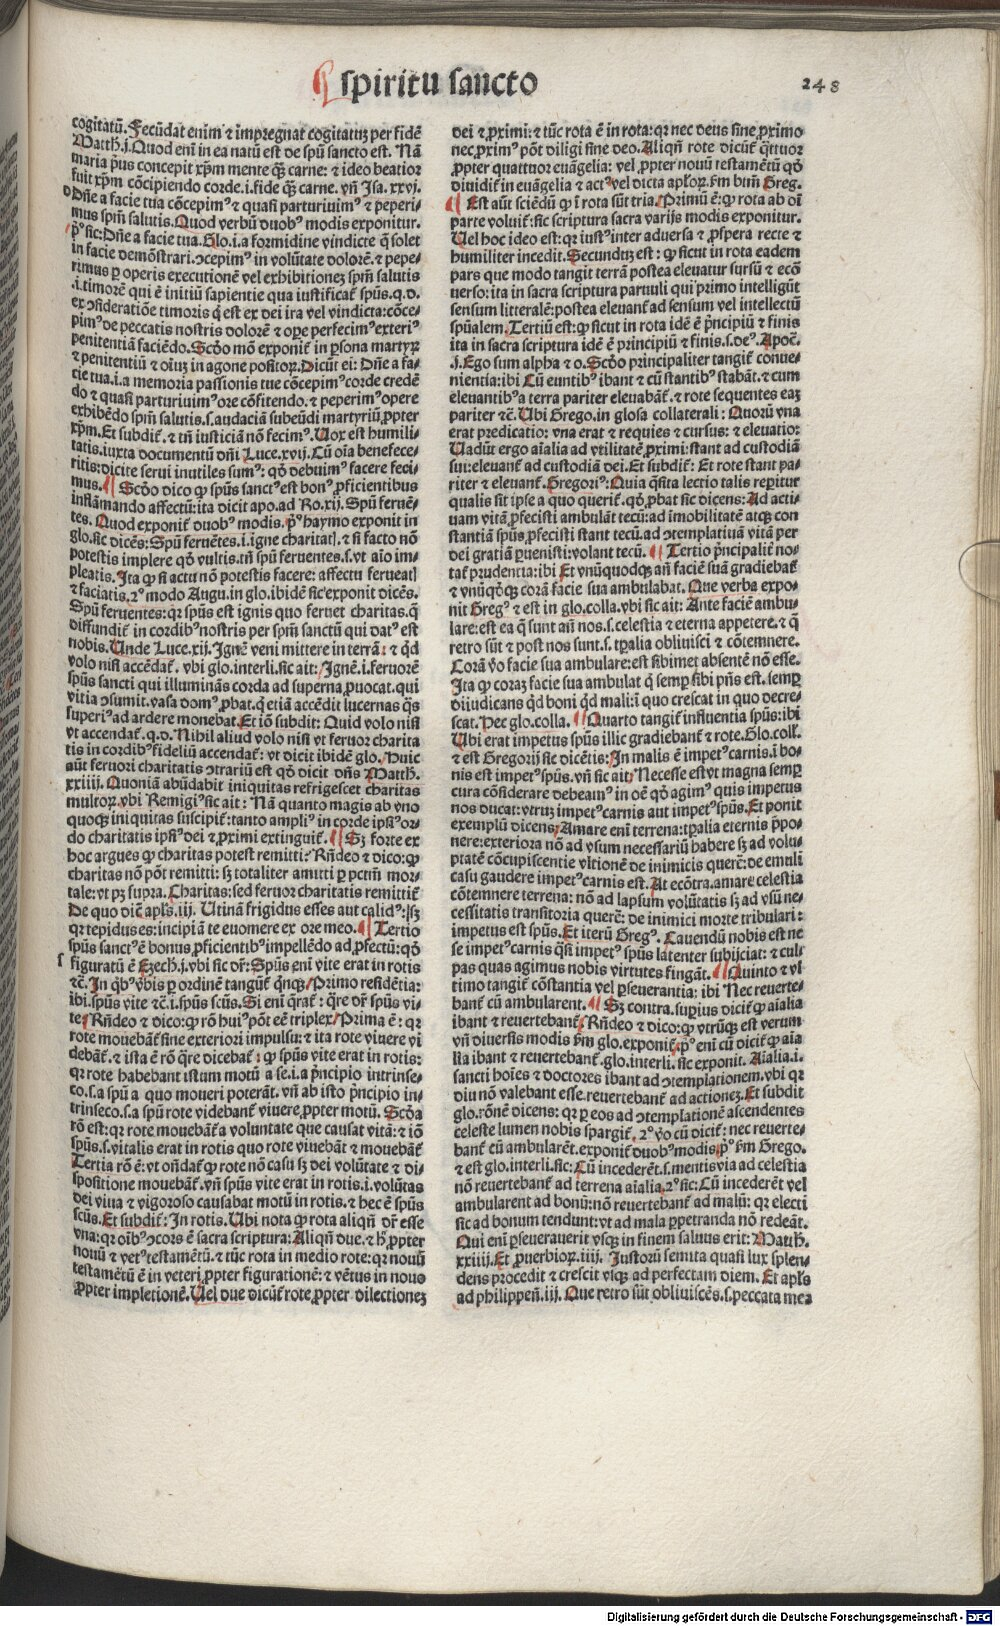 ¶ spiritu sancto
248
cogitatū. Fecūdat enim ⁊ impregnat cogitatuȝ per fidē
Matth. j. Quod enī in ea natū est de spū sancto est. Nā
maria pꝰus concepit xp̄m mente qȝ carne: ⁊ ideo beatior
fuit xp̄m cōcipiendo corde .i. fide qȝ carne. vn̄ Isa. xxvj.
Dn̄e a facie tua cōcepimꝰ ⁊ quasi parturiuimꝰ ⁊ peperi-
mus sp̄m salutis. Quod verbū duobꝰ modis exponitur.
pꝰ sic: Dn̄e a facie tua. Glo. i. a formidine vindicte q̄ solet
in facie demōstrari. ↄcepimꝰ in volūtate dolorē. ⁊ pepe-
rimus ꝑ operis executionē vel exhibitioneȝ sp̄m salutis
.i. timorē qui ē initiū sapientie qua iustificat̄ sp̄us. q. d.
ex ↄsideratiōe timoris q̄ est ex dei ira vel vindicta: cōce-
pimꝰ de peccatis nostris dolorē ⁊ oꝑe perfecimꝰ exteriꝰ
penitentiā faciēdo. Scd̄o mō exponit̄ in ꝑsona martyꝝ
⁊ penitentiū ⁊ oīuȝ in agone positoꝝ. Dicūt ei: Dn̄e a fa-
cie tua .i. a memoria passionis tue cōcepimꝰ corde credē
do ⁊ quasi parturiuimꝰ ore cōfitendo. ⁊ peperimꝰ opere
exhibēdo sp̄m salutis .s. audaciā subeūdi martyriū ꝓpter
xp̄m. Et subdit̄. ⁊ tn̄ iusticiā nō fecimꝰ. Vox est humili-
tatis. iuxta documentū dn̄i Luce. xvij. Cū oīa benefece-
ritis: dicite serui inutiles sumꝰ: qd̄ debuimꝰ facere feci-
mus. ¶ Scd̄o dico ꝙ sp̄us sanctꝰ est bonꝰ ꝓficientibus
inflāmando affectū: ita dicit apo. ad Ro. xij. Spū feruē-
tes. Quod exponit̄ duobꝰ modis. pꝰ haymo exponit in
glo. sic dicēs: Spū feruētes .i. igne charitat̄. ⁊ si facto nō
potestis implere qd̄ vultis. tn̄ spū feruentes .s. vt aīo im-
pleatis. Ita ꝙ si actu nō potestis facere: affectu ferueat̄
⁊ faciatis. 2ꝰ modo Augu. in glo. ibidē sic exponit dicēs.
Spū feruentes: qr sp̄us est ignis quo feruet charitas. q̄
diffundit̄ in cordibꝰ nostris per sp̄m sanctū qui datꝰ est
nobis. Unde Luce. xij. Ignē veni mittere in terrā: ⁊ qd̄
volo nisi accēdat̄. vbi glo. interli. sic ait: Ignē .i. feruorē
sp̄us sancti qui illuminās corda ad superna ꝓuocat. qui
vitia ↄsumit. vasa domꝰ ꝓbat. q̄ etiā accēdit lucernas q̄s
superiꝰ ad ardere monebat. Et iō subdit: Quid volo nisi
vt accendat̄. q. d. Nihil aliud volo nisi vt feruor charita
tis in cordibꝰ fideliū accendat̄: vt dicit ibidē glo. Huic
aūt feruori charitatis ↄtrariū est qd̄ dicit dn̄s Matth.
xxiiij. Quoniā abūdabit iniquitas refrigescet charitas
multoꝝ. vbi Remigiꝰ sic ait: Nā quanto magis ab vno
quoqȝ iniquitas suscipit̄: tanto ampliꝰ in corde ipsiꝰ or-
do charitatis ipsiꝰ dei ⁊ ꝓximi extinguit̄. ¶ Sȝ forte ex
hoc argues ꝙ charitas potest remitti? Rn̄deo ⁊ dico: ꝙ
charitas nō pōt remitti: sȝ totaliter amitti ꝑ pctm̄ mor-
tale: vt pȝ supra. Charitas: sed feruor charitatis remittit̄
De quo dic̄ apl̄s. iij. Utinā frigidus esses aut calidꝰ: sȝ
qr tepidus es: incipiā te euomere ex ore meo. ¶ Tertio
sp̄us sanctꝰ ē bonus ꝓficientibꝰ impellēdo ad ꝓfectū: qd̄
figuratū ē Ezech. j. vbi sic dr̄: Sp̄us enī vite erat in rotis
⁊c̄. In qͥbꝰ v̓bis ꝑ ordinē tangūt̄ qͥnqȝ. Primo residētia:
ibi. sp̄us vite ⁊c̄. i. sp̄us scūs. Si enī q̄rat̄: q̄re dr̄ sp̄us vi-
te. Rn̄deo ⁊ dico: ꝙ rō huiꝰ pōt eē triplex. Prima ē: qr
rote mouebāt̄ sine exteriori impulsu: ⁊ ita rote viuere vi
debāt̄. ⁊ ista ē rō q̄re dicebat̄: ꝙ sp̄us vite erat in rotis:
qr rote habebant istum motū a se .i. a pͥncipio intrinse-
co .s. a spū a quo moueri poterāt. vn̄ ab isto pͥncipio in-
trinseco .s. a spū rote videbant̄ viuere ꝓpter motū. Scd̄a
rō est: qr rote mouebāt̄ a voluntate que causat vitā: ⁊ iō
sp̄us .s. vitalis erat in rotis quo rote viuebāt ⁊ mouebāt̄
Tertia rō ē: vt on̄dat̄ ꝙ rote nō casu sȝ dei volūtate ⁊ di-
spositione mouebāt̄. vn̄ sp̄us vite erat in rotis .i. volūtas
dei viua ⁊ vigoroso causabat motū in rotis. ⁊ hec ē sp̄us
scūs. Et subdit̄: In rotis. Ubi nota ꝙ rota aliqn̄ dr̄ esse
vna: qr oībꝰ ↄcors ē sacra scriptura: Aliqn̄ due. ⁊ h̄ ꝓpter
nouū ⁊ vetꝰ testamētū. ⁊ tūc rota in medio rote: qr nouū
testamētū ē in veteri ꝓpter figurationē: ⁊ vētus in nouo
ꝓpter impletionē. Uel due dicūt̄ rote ꝓpter dilectioneȝ
dei ⁊ ꝓximi: ⁊ tūc rota ē in rota: qr nec deus sine ꝓximo
nec ꝓximꝰ pōt diligi sine deo. Aliqn̄ rote dicūt̄ q̄ttuor
ꝓpter quattuor euāgelia: vel ꝓpter nouū testamētū qd̄
diuidit̄ in euāgelia ⁊ actꝰ vel dicta apl̄oꝝ. fm btm̄ Greg.
¶ Est aūt sciēdū ꝙ ī rota sūt tria. Primū ē: ꝙ rota ab oī
parte voluit̄: sic scriptura sacra varijs modis exponitur.
Uel hoc ideo est: qr iustꝰ inter aduersa ⁊ ꝓspera recte ⁊
humiliter incedit. Secunduȝ est: ꝙ sicut in rota eadem
pars que modo tangit terrā postea eleuatur sursū ⁊ ecō
uerso: ita in sacra scriptura paruuli qui primo intelligūt
sensum litteralē: postea eleuant̄ ad sensum vel intellectū
spūalem. Tertiū est: ꝙ sicut in rota idē ē pͥncipiū ⁊ finis
ita in sacra scriptura idē ē principiū ⁊ finis .s. deꝰ. Apoc̄.
.j. Ego sum alpha ⁊ o. Scd̄o principaliter tangit̄ conue-
nientia: ibi Cū euntibꝰ ibant ⁊ cū stantibꝰ stabāt. ⁊ cum
eleuantibꝰ a terra pariter eleuabāt̄. ⁊ rote sequentes eaȝ
pariter ⁊c̄. Ubi Grego. in glosa collaterali: Quorū vna
erat predicatio: vna erat ⁊ requies ⁊ cursus: ⁊ eleuatio:
Uadūt ergo aīalia ad vtilitatē ꝓximi: stant ad custodiā
sui: eleuant̄ ad custodiā dei. Et subdit̄: Et rote stant pa-
riter ⁊ eleuant̄. Gregoriꝰ: Quia q̄sita lectio talis reꝑitur
qualis sit ipse a quo querit̄. qd̄ ꝓbat sic dicens: Ad acti-
uam vitā ꝓfecisti ambulāt tecū: ad imobilitatē atqȝ con
stantiā sp̄us ꝓfecisti stant tecū. ad ↄtemplatiuā vitā per
dei gratiā ꝑuenisti: volant tecū. ¶ Tertio pͥncipalit̄ no-
tat̄ prudentia: ibi Et vnūquodqȝ an̄ faciē suā gradiebat̄
⁊ vnūqd̄qȝ corā facie sua ambulabat. Que verba expo-
nit Gregꝰ ⁊ est in glo. colla. vbi sic ait: Ante faciē ambu-
lare: est ea q̄ sunt an̄ nos .s. celestia ⁊ eterna appetere. ⁊ q̄
retro sūt ⁊ post nos sunt .s. tꝑalia obliuisci ⁊ cōtemnere.
Corā v̓o facie sua ambulare: est sibimet absentē nō esse.
Ita ꝙ coraȝ facie sua ambulat q̄ semꝑ sibi pn̄s est. semꝑ
dijudicans qd̄ boni qd̄ mali: ī quo crescat in quo decre-
scat. Hec glo. colla. ¶ Quarto tangit̄ influentia sp̄us: ibi
Ubi erat impetus sp̄us illic gradiebant̄ ⁊ rote. Glo. coll̄.
⁊ est Gregorij sic dicētis: In malis ē impetꝰ carnis. ī bo-
nis est impetꝰ sp̄us. vn̄ sic ait: Necesse est vt magna semꝑ
cura cōsiderare debeamꝰ in oē qd̄ agimꝰ quis impetus
nos ducat: vtruȝ impetꝰ carnis aut impetꝰ sp̄us. Et ponit
exemplū dicens: Amare enī terrena: tꝑalia eternis p̄po-
nere: exteriora nō ad vsum necessariū habere sȝ ad volu-
ptatē cōcupiscentie vltionē de inimicis querē: de emuli
casu gaudere impetꝰ carnis est. At ecōtra. amare celestia
cōtemnere terrena: nō ad lapsum volūtatis sȝ ad vsū ne-
cessitatis transitoria querē: de inimici morte tribulari:
impetus est sp̄us. Et iterū Gregꝰ. Cauendū nobis est ne
se impetꝰ carnis q̄si impetꝰ sp̄us latenter subijciat: ⁊ cul-
pas quas agimus nobis virtutes fingāt. ¶ Quinto ⁊ vl
timo tangit̄ cōstantia vel ꝑseuerantia: ibi Nec reuerte-
bant̄ cū ambularent. ¶ Sȝ contra. superius dicit̄ ꝙ aīalia
ibant ⁊ reuertebant̄. Rn̄deo ⁊ dico: ꝙ vtrūqȝ est verum
vn̄ diuersis modis fm glo. exponit̄. pꝰ enī cū dicit̄ ꝙ aīa
lia ibant ⁊ reuertebant̄. glo. interli. sic exponit. Aīalia .i.
sancti hoīes ⁊ doctores ibant ad ↄtemplationem. vbi qr
diu nō valebant esse. reuertebant̄ ad actioneȝ. Et subdit
glo. rōnē dicens: qr ꝑ eos ad ↄtemplationē ascendentes
celeste lumen nobis spargit̄. 2ꝰ v̓o cū dicit̄: nec reuerte-
bant̄ cū ambularēt. exponit̄ duobꝰ modis. pꝰ fm Grego.
⁊ est glo. interli. sic: Cū incederēt .s. mentis via ad celestia
nō reuertebant̄ ad terrena aīalia. 2ꝰ sic: Cū incederēt vel
ambularent ad bonū: nō reuertebant̄ ad malū: qr electi
sic ad bonum tendunt: vt ad mala ꝑpetranda nō redeāt.
Qui enī ꝑseuerauerit vsqȝ in finem saluus erit: Matth.
xxiiij. Et ꝓuerbioꝝ. iiij. Justorū semita quasi lux splen-
dens procedit ⁊ crescit vsqȝ ad perfectam diem. Et apl̄s
ad philippen̄. iij. Que retro sūt obliuiscēs .s. peccata mea
Digitalisierung gefördert durch die Deutsche Forschungsgemeinschaft - DFG